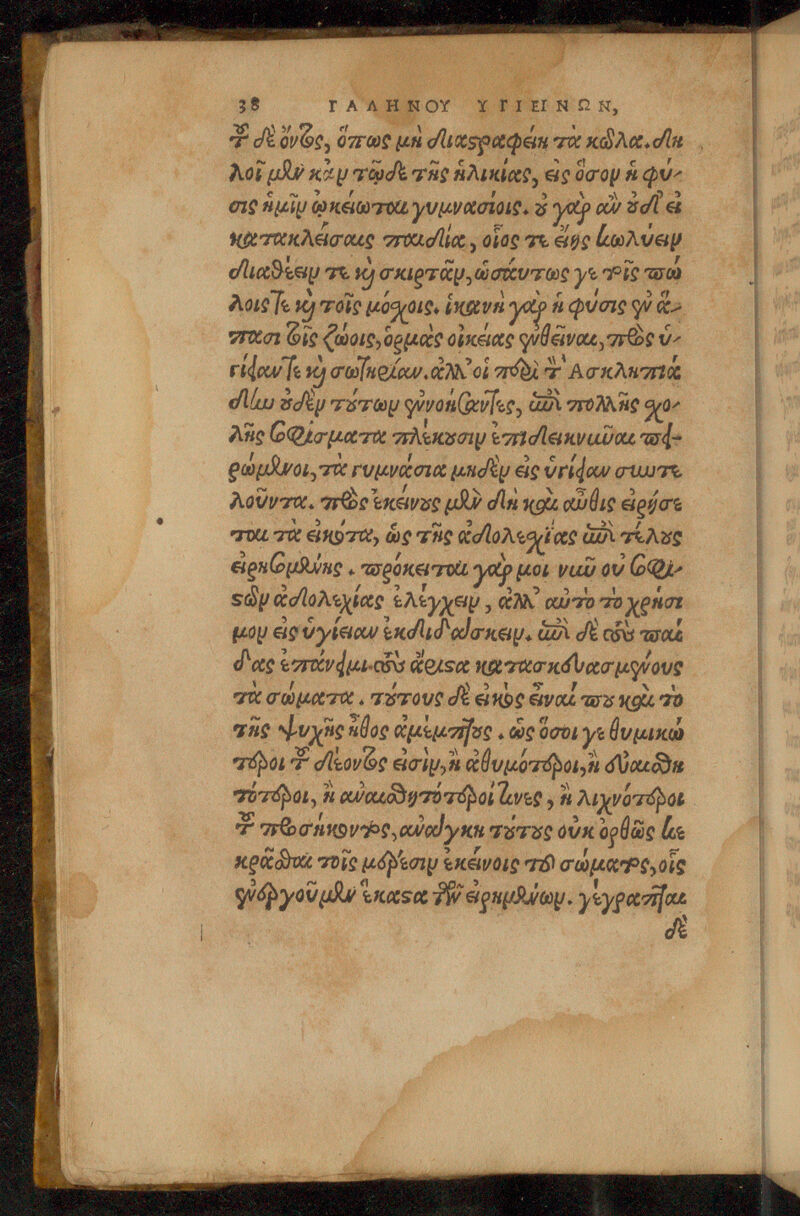 38 ΓΑΛΗΝΟΥ ΥΓΙΕΙΝΩΝ,
τοῦ δέοντος, ὅπως μὴ διαστραφείη τὰ κῶλα. δη
λοῖ μὲν κἀν τῷδε τῆς ἡλικίας, εἰς ὅσον ἡ φύ-
σις ἡμῖν ᾠκείωται γυμνασίοις. οὐ γὰρ ἂν οὐδ' εἰ
κατακλείσαις παιδία, οἷος τε εἴης κωλύειν
διαθέειν τε καὶ σκιρτᾶν, ὡσαύτως γε τοῖς πώ
λοις τε καὶ τοῖς μόσχοις. ἱκανὴ γὰρ ἡ φύσις ἐν ἅ-
πασι τοῖς ζώοις, ὁρμὰς οἰκείας ἐνθεῖναι, πρὸς ὑ-
γίειαν τε καὶ σωτηρίαν. ἀλλ' οἱ περὶ τὸν Ἀσκληπιά
δην οὐδὲν τούτων ἐννοήσαντες, ἀπὸ πολλῆς σχο-
λῆς σοφίσματα πλέκουσιν ἐπιδεικνῦναι πει-
ρώμενοι, τὰ γυμνάσια μηδὲν εἰς ὑγίειαν συντε
λοῦντα. πρὸς ἐκείνους μὲν δὴ καὶ αὖθις εἰρήσε
ται τὰ εἰκότα, ὡς τῆς ἀδολεσχίας ἐπὶ τέλους
εἰρησομένης. πρόκειται γὰρ μοι νῦν οὐ σοφι-
στῶν ἀδολεχίας ἐλέγχειν, ἀλλ' αὐτὸ τὸ χρήσι
μον εἰς ὑγίειαν ἐκδιδάσκειν. ἐπὶ δὲ τοὺς παῖ
δας ἐπάνειμι τοὺς ἄριστα κατασκευασμένους
τὰ σώματα. τούτους δὲ εἰκὸς εἶναί που καὶ τὸ
τῆς ψυχῆς ἦθος ἀμέμπτους. ὡς ὅσοι γε θυμικώ
τεροι τοῦ δέοντος εἰσὶν, ἢ ἀθυμότεροι, ἢ ἀναισθη
τότεροι, ἢ ἀναισθητότεροί τινες, ἢ λιχνότεροι
τοῦ προσήκοντος, ἀνάγκη τούτους οὐκ ὀρθῶς κε
κρᾶσθαι τοῖς μέρεσιν ἐκείνοις τοῦ σώματος, οἷς
ἐνεργοῦμεν ἕκαστα τῶν εἰρημένων. γέγραπται
δὲ